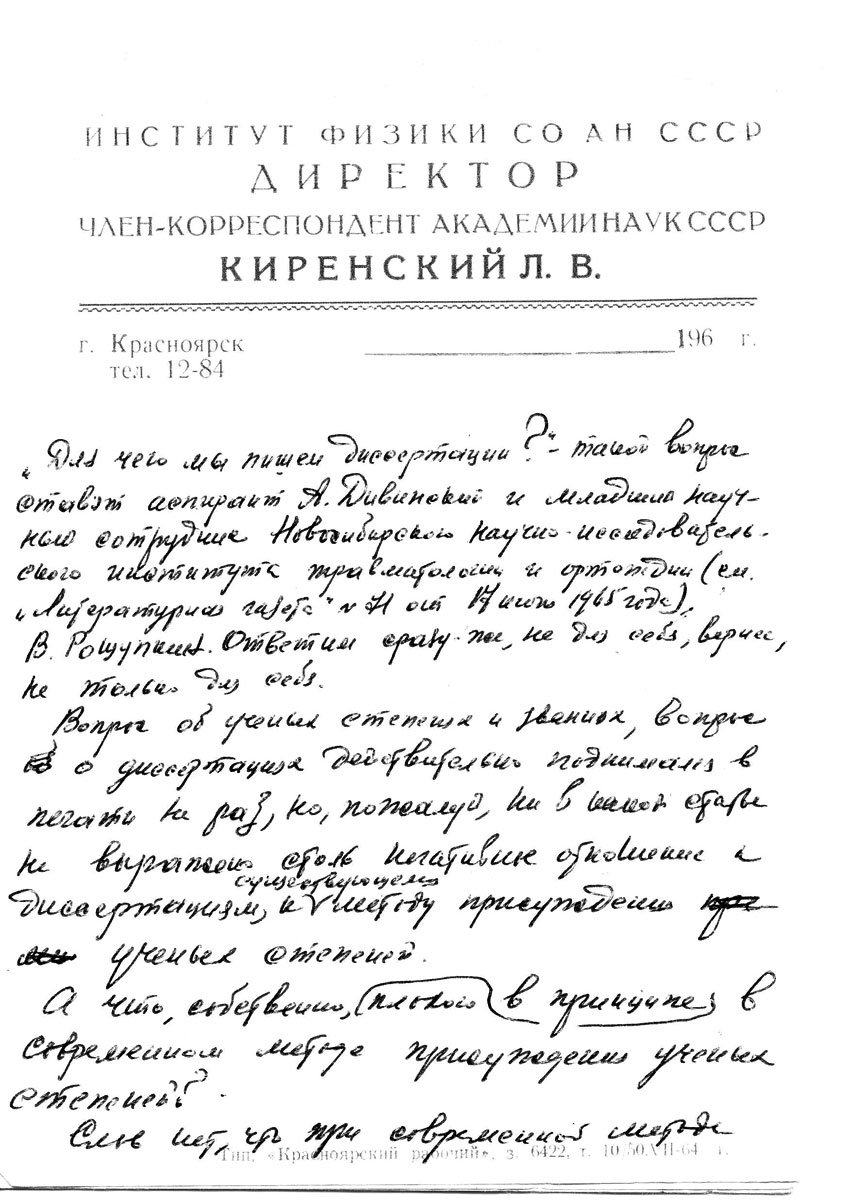 ИНСТИТУТ ФИЗИКИ СО АН СССР
ДИРЕКТОР
ЧЛЕН-КОРРЕСПОНДЕНТ АКАДЕМИИ НАУК СССР
КИРЕНСКИЙ Л. В.
г. Красноярск 196 г.
тел. 12-84
„Для чего мы пишем диссертации?“ – такой вопрос
ставят аспирант А. Дивинский и младший науч-
ный сотрудник Новосибирского научно-исследователь-
ского института травматологии и ортопедии (см.
„Литературная газета“ № 71 от 17 июня 1965 года)
В. Рощупкин. Ответим сразу же, не для себя, вернее,
не только для себя.
Вопрос об ученых степенях и званиях, вопрос
о диссертациях действительно поднимался в
печати не раз, но, пожалуй, ни в какой статье
не выражено столь негативное отношение к
существующему
диссертациям, к методу присуждения
ученых степеней.
А что, собственно, плохого в принципе, в
современном методе присуждения ученых
степеней?
Слов нет, что при современной методе
Тип. «Красноярский рабочий». з. 6422, т. 10/50.VII-64 г.